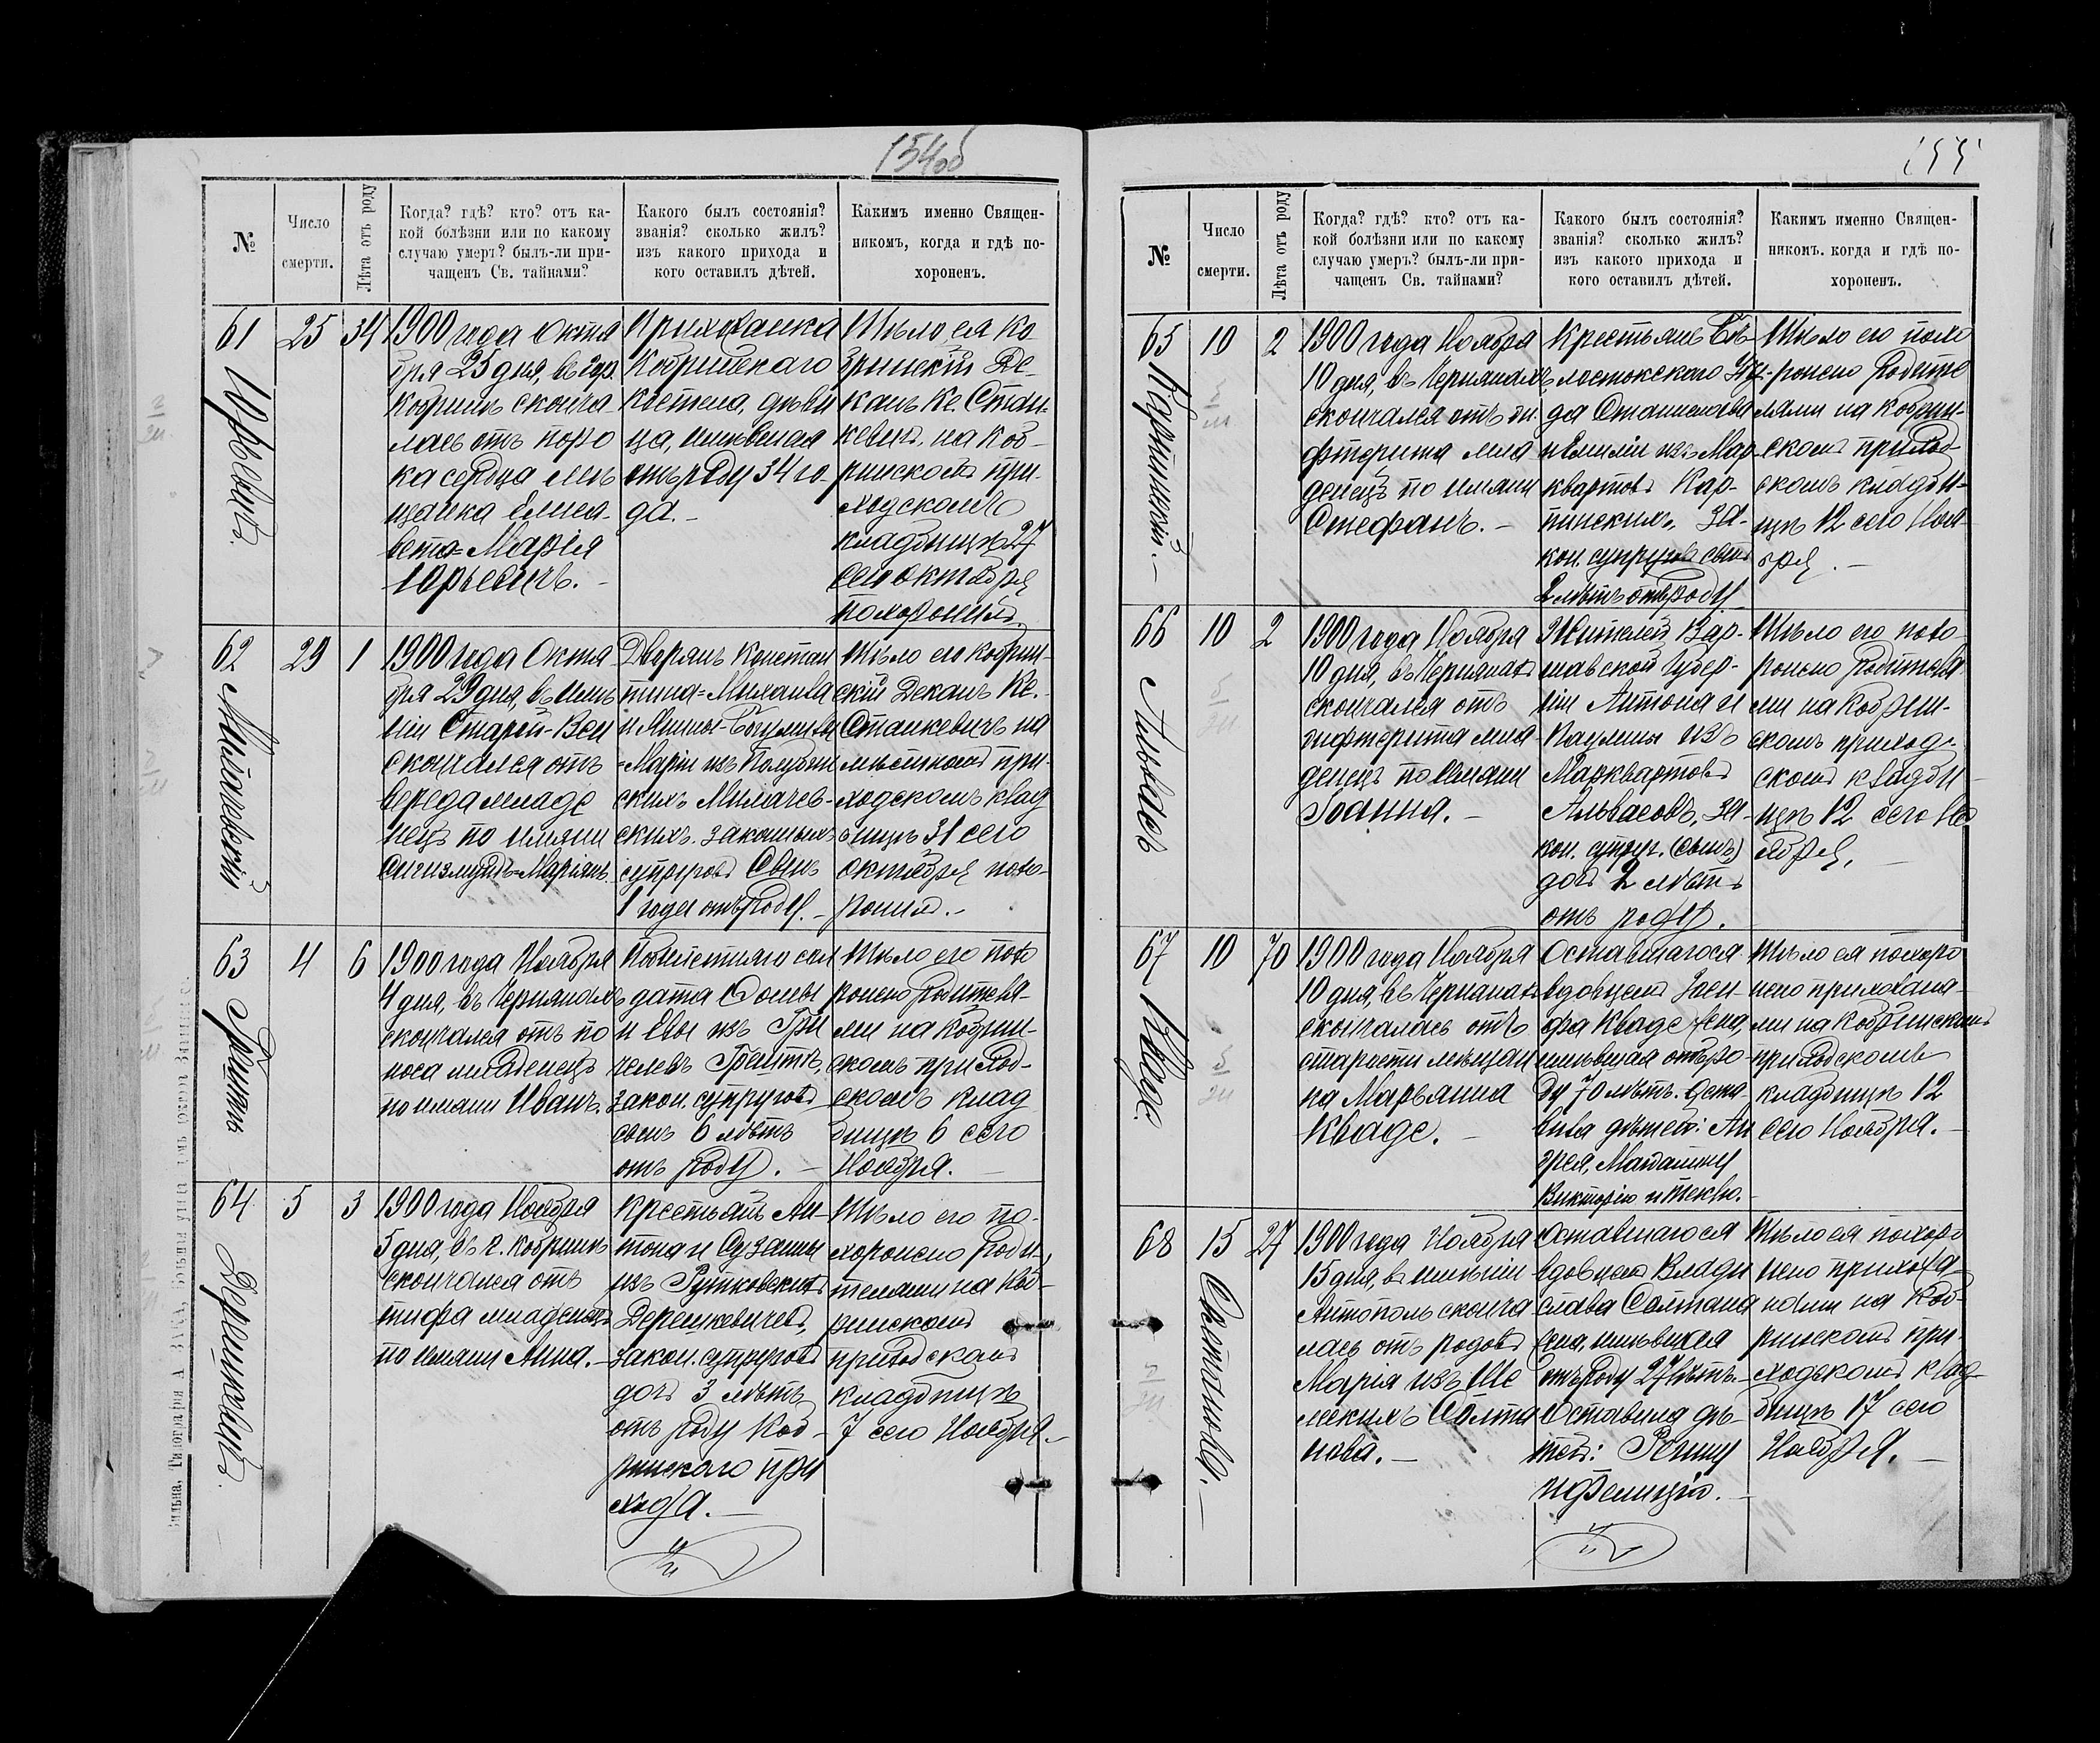 154об
№
Число
смерти.
Лѣта отъ роду
Когда? гдѣ? кто? отъ ка-
кой болѣзни или по какому
случаю умеръ? былъ-ли при-
чащенъ Св. тайнами?
Какого былъ состоянія?
званія? сколько жилъ?
изъ какого прихода и
кого оставилъ дѣтей.
Какимъ именно Священ-
никомъ, когда и гдѣ по-
хороненъ.
61
Юрьевичъ.
25
34
1900 года Октя
бря 25 дня, въ гор.
Кобринѣ сконча
лась отъ поро
ка сердца мѣ
щанка Елиса
вета=Марія
Юрьевичъ. -
Прихожанка
Кобринскаго
Костела, дѣви
ца, имѣвшая
отъ роду 34 го-
да. -
Тѣло ея Ко
бринскій Де-
канъ Кс. Стан-
кевичъ, на Коб-
ринскомъ при-
ходскомъ
кладбищѣ 27
сего Октября
похоронилъ.
62
29
1
1900 года Октя
бря 29 дня, въ имѣ
ніи Старой-Вси
скончался отъ
вереда младе
нецъ по имени
Сигизмундъ=Маріянъ.
Дворянъ Констан
тина=Михаила
=Маріи изъ
скихъ. законныхъ
супруговъ Сынъ
1 года отъ роду. -
Тѣло его Кобрин-
скій Деканъ Кс.
Станкевичъ на
мѣстномъ при-
ходскомъ клад
бищѣ 31 сего
Октября похо-
ронилъ. -
63
4
6
1900 года Ноября
4 дня, въ Чернянахъ
скончался отъ по
носа младенецъ
по имени Иванъ.
сол
дата
и Евы изъ
закон. супруговъ
сынъ 6 лѣтъ
отъ роду. -
Тѣло его похо
ронено родителя-
ми на Кобрин-
скомъ приход-
скомъ клад
бищѣ 6 сего
Ноября. -
64
Дерешкевичъ.
5
3
1900 года Ноября
5 дня, въ г. Кобринѣ
скончался отъ
тифа младенецъ
по имени Анна. -
Крестьянъ Ан-
тона и Сузанны
изъ Рутковскихъ
Дерешкевичевъ,
закон. супруговъ
дочь 3 лѣтъ
отъ роду Коб-
ринскаго при
хода. -
Тѣло его по-
хоронено роди-
телями на Коб-
ринскомъ
приходскомъ
кладбищѣ
7 сего Ноября. -
155
№
Число
смерти.
Лѣта отъ роду
Когда? гдѣ? кто? отъ ка-
кой болѣзни или по какому
случаю умеръ? былъ-ли при-
чащенъ Св. тайнами?
Какого былъ состоянія?
званія? сколько жилъ?
изъ какого прихода и
кого оставилъ дѣтей.
Какимъ именно Священ-
никомъ, когда и гдѣ по-
хороненъ.
65
Карпинскій. -
10
2
1900 года Ноября
10 дня, въ Чернянахъ
скончался отъ ди
фтерита мла
денецъ по имени
Стефанъ. -
Крестьянъ Бѣ-
лостокскаго Уѣз-
да Станислава
и Емиліи изъ Мар-
квартовъ Кар-
пинскихъ, за-
кон. супруговъ сынъ
2 лѣтъ отъ роду
Тѣло его похо
ронено родите
лями на Кобрин-
скомъ приход-
скомъ кладби-
щѣ 12 сего Ноя-
бря. -
66
Альвасъ
10
2
1900 года Ноября
10 дня, въ Чернянахъ
скончался отъ
дифтерита мла
денецъ по имени
Іоанна. -
Жителей Вар-
шавской Губер-
ніи Антона и
Паулины изъ
Марквартовъ
Альвасовъ, за-
кон. супруг. (сынъ)
дочь 2 лѣтъ
отъ роду.
Тѣло его похо-
ронено родителя-
ми на Кобрин-
скомъ приход-
скомъ кладби-
щѣ 12 сего Но
ября. -
67
Кваде.
10
70
1900 года Ноября
10 дня, въ Чернянахъ
скончалась отъ
старости мѣщан
ка Марьянна
Кваде. -
Оставшагося
вдовцемъ Іоси-
фа Кваде жена,
имѣвшая отъ ро-
ду 70 лѣтъ. Оста-
вила дѣтей: Ан
дрея,
Викторію и Теклю. -
Тѣло ея похоро
нено прихожана-
ми на Кобринскомъ
приходскомъ
кладбищѣ 12
сего Ноября. -
68
Солтанова. -
15
27
1900 года Ноября
15 дня, въ имѣніи
Антополь сконча
лась отъ родовъ
Марія изъ
Солта
нова. -
Оставшагося
вдовцемъ Влади
слава Солтана
жена, имѣвшая
отъ роду 27 лѣтъ. -
Оставила дѣ-
тей:
и Фелицію. -
Тѣло ея похоро
нено прихожа-
нами на Коб-
ринскомъ при-
ходскомъ клад-
бищѣ 17 сего
Ноября. -